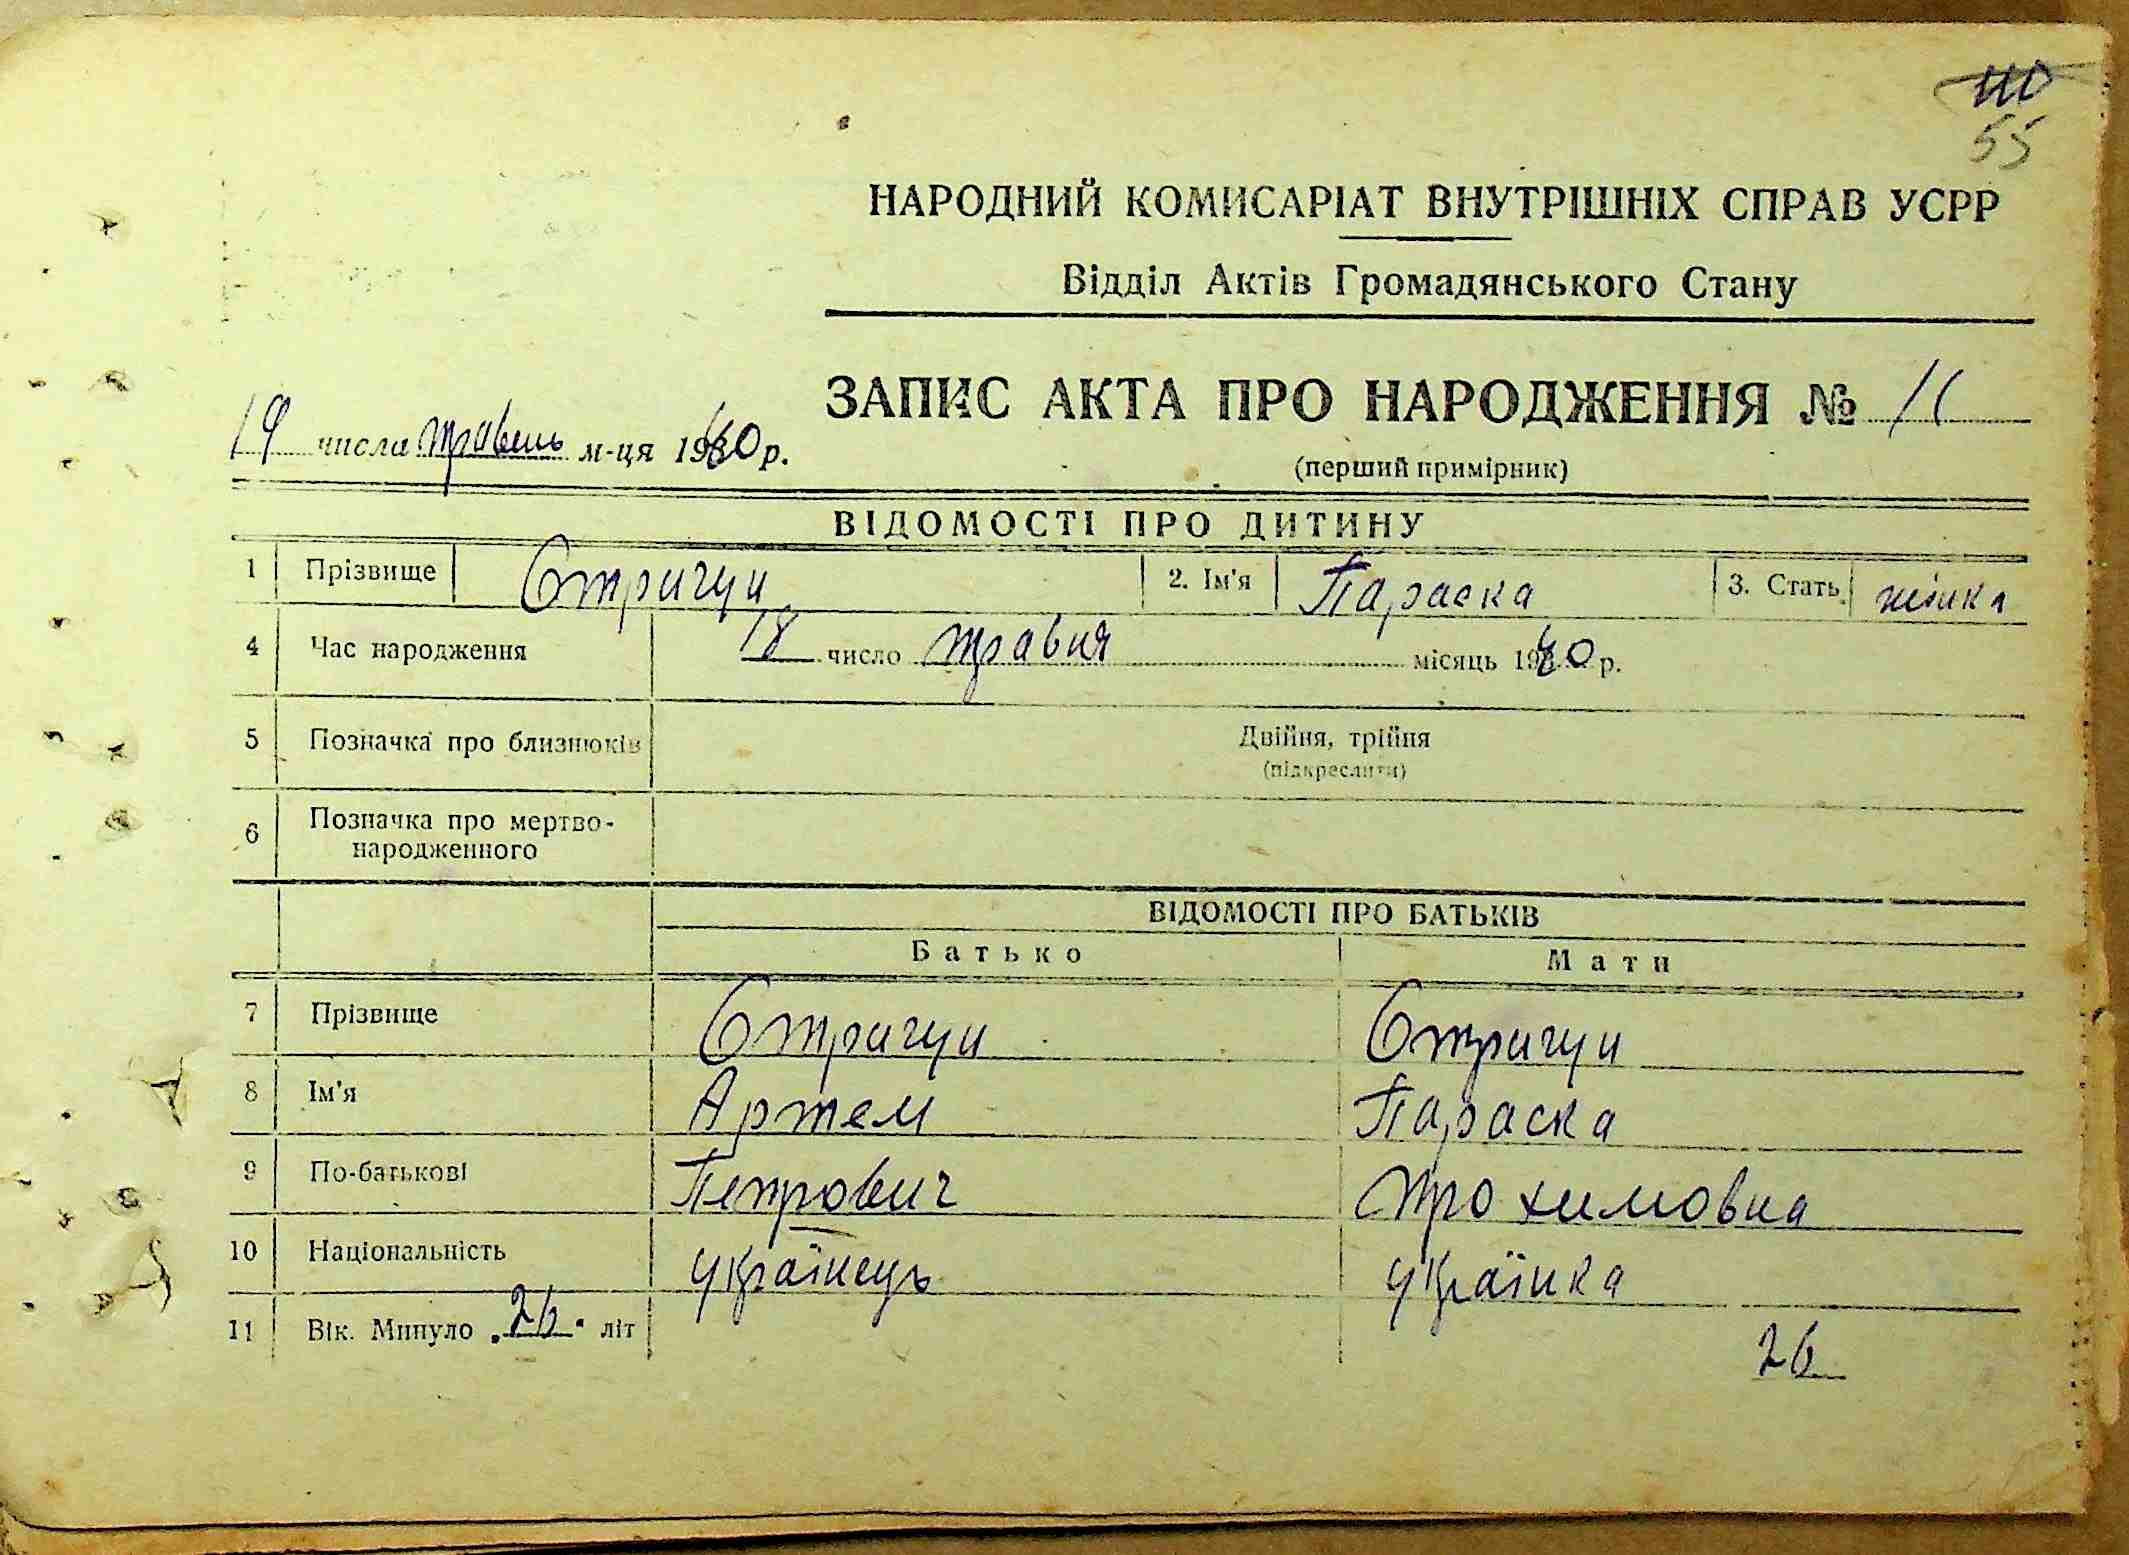 110
55
НАРОДНИЙ КОМИСАРІАТ ВНУТРІШНІХ СПРАВ УСРР
Відділ Актів Громадянського Стану
ЗАПИС АКТА ПРО НАРОДЖЕННЯ № 11
19 числа травень м-ця 1940 р.
(перший примірник)
ВІДОМОСТІ ПРО ДИТИНУ
1 Прізвище Стригун 2. Ім'я Параска 3. Стать жінка
4 Час народження 18 число травня місяць 1940 р.
5 Позначка про близнюків Двійня, трійня
(підкреслити)
6 Позначка про мертво-
народженного
ВІДОМОСТІ ПРО БАТЬКІВ
Батько Мати
7 Прізвище Стригун Стригун
8 Ім'я Артем Параска
9 По-батькові Петрович Прохимовна
10 Національність українець українка
11 Вік. Минуло 26 літ 26